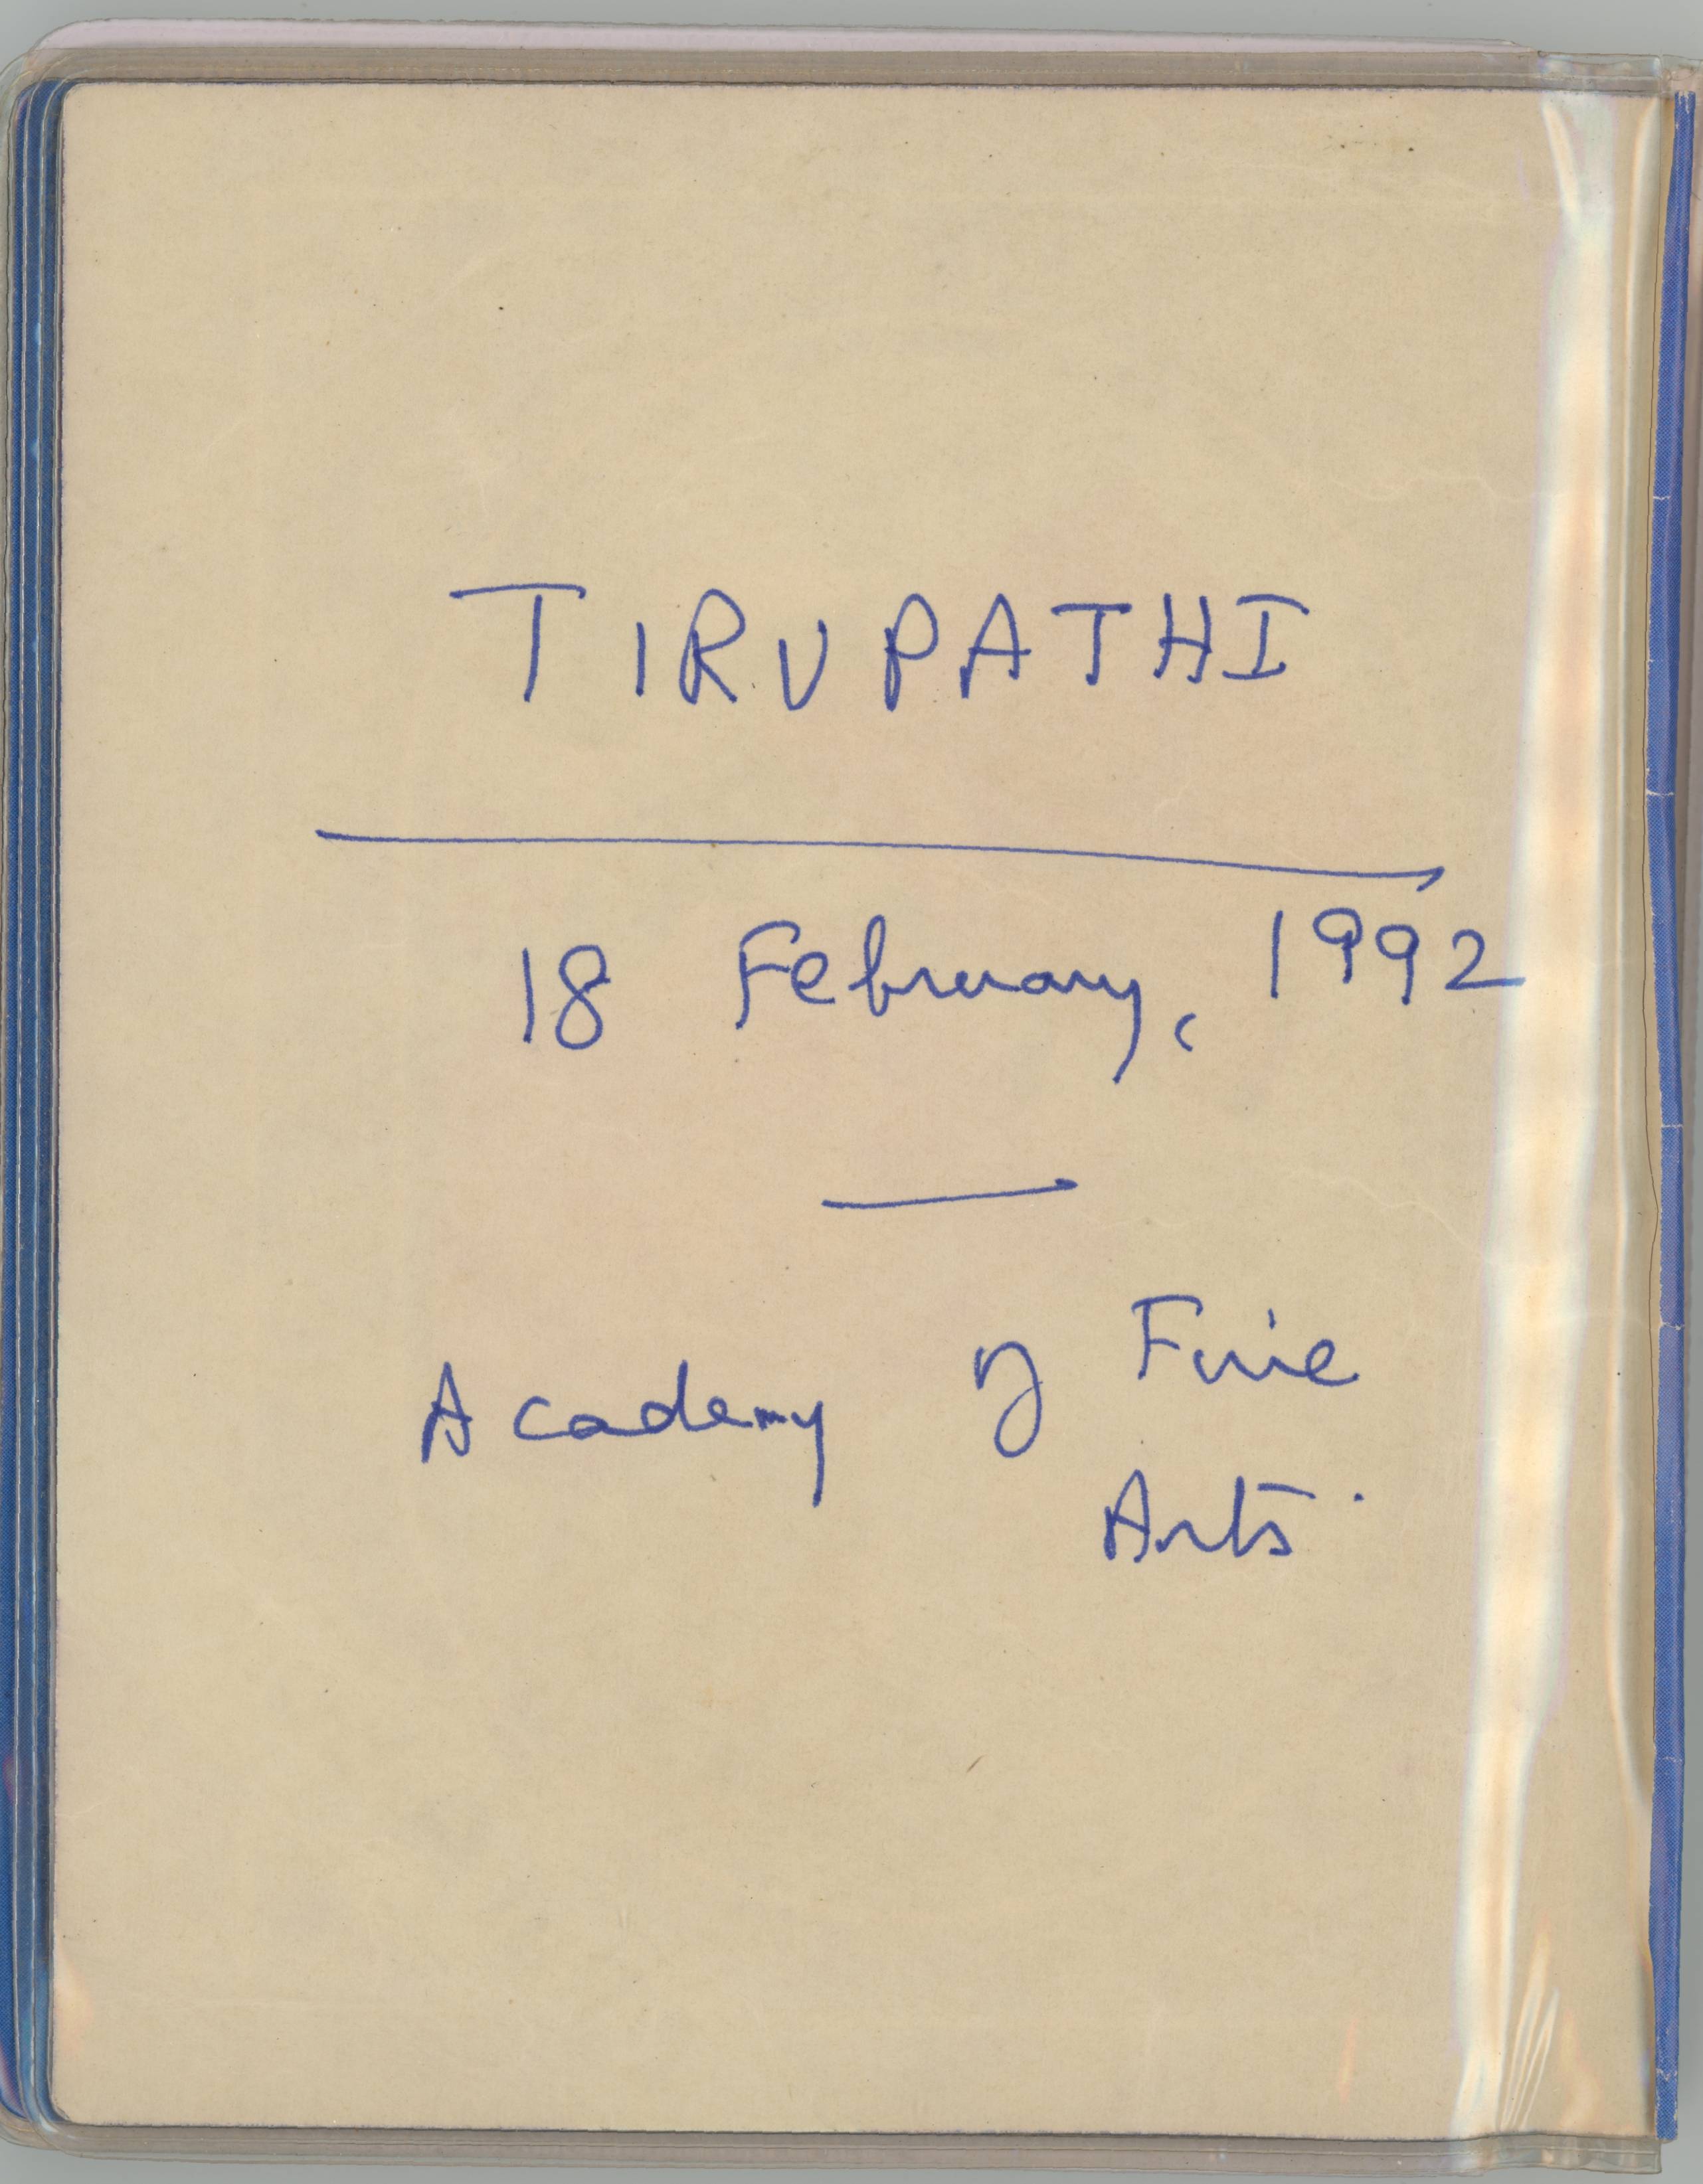 TIRUPATHI
18 February, 1992
Academy of Fine
Arts.